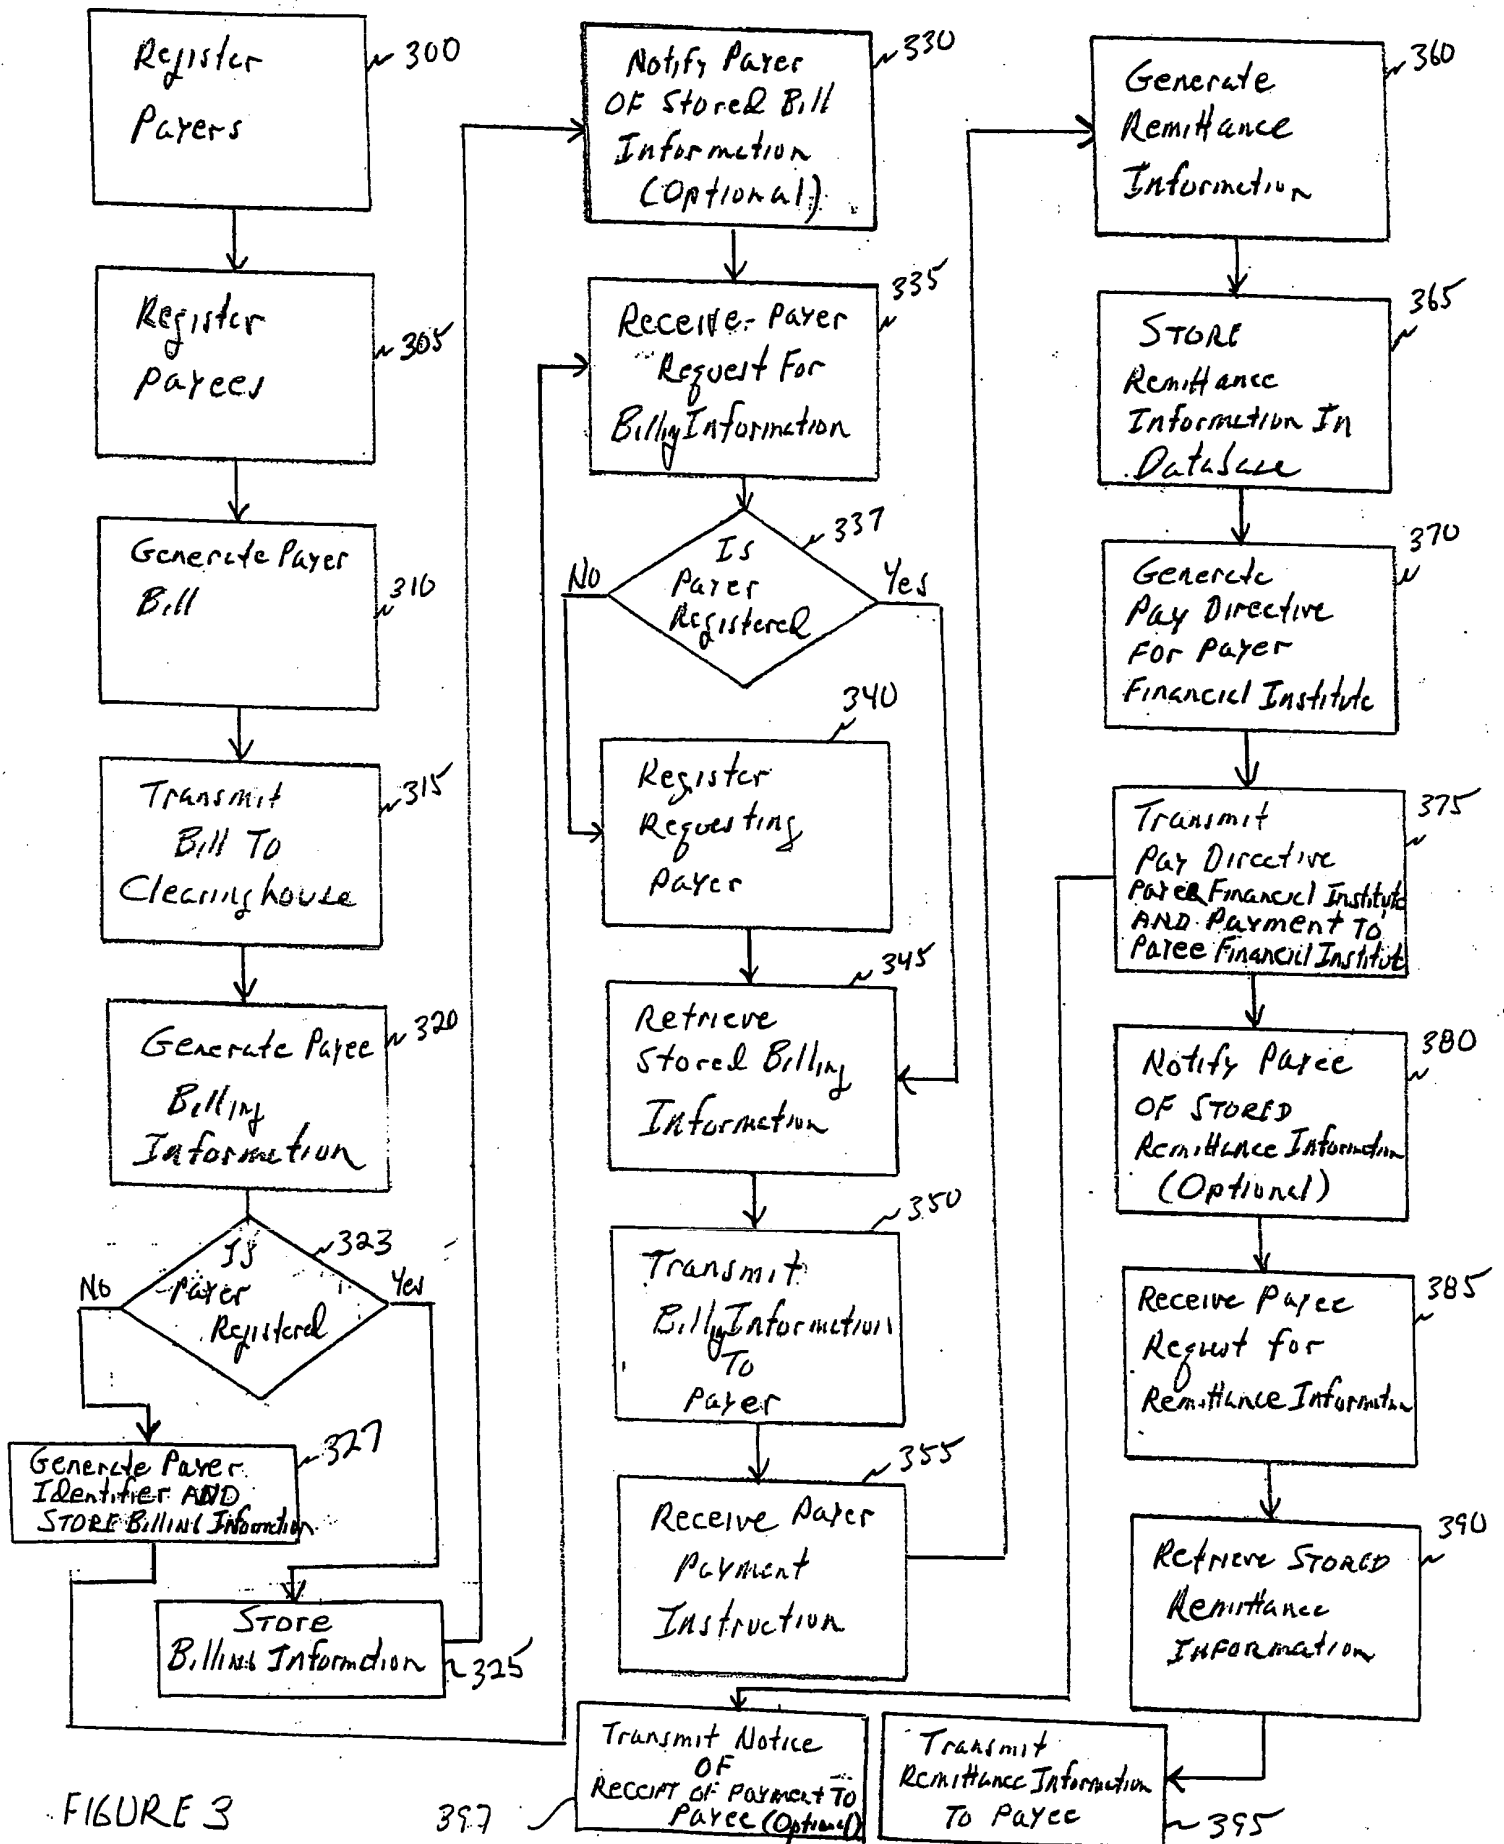 Register
Payers
300
Register
Payees
305
Generate Payer
Bill
310
Transmit
Bill To
Clearinghouse
315
Generate Payee
Billing
Information
320
Is
Payer
Registered
323
No
Yes
Generate Payer
Identifier AND
STORE Billing Information
327
Store
Billing Information
325
Notify Payer
OF Stored Bill
Information
(Optional)
330
Receive Payer
Request For
Billing Information
335
Is
Payer
Registered
337
No
Yes
Register
Requesting
Payer
340
Retrieve
Stored Billing
Information
345
Transmit
Billing Information
To
Payer
350
Receive Payer
Payment
Instruction
355
Generate
Remittance
Information
360
STORE
Remittance
Information In
Database
365
Generate
Pay Directive
For Payer
Financial Institute
370
Transmit
Pay Directive
Payer Financial Institute
AND Payment To
Payee Financial Institut
375
Notify Payee
OF STORED
Remittance Information
(Optional)
380
Receive Payee
Request for
Remittance Information
385
Retrieve STORED
Remittance
INFORMATION
390
Transmit
Remittance Information
To Payee
395
Transmit Notice
OF
RECEIPT OF Payment To
Payee (Optional)
397
FIGURE 3